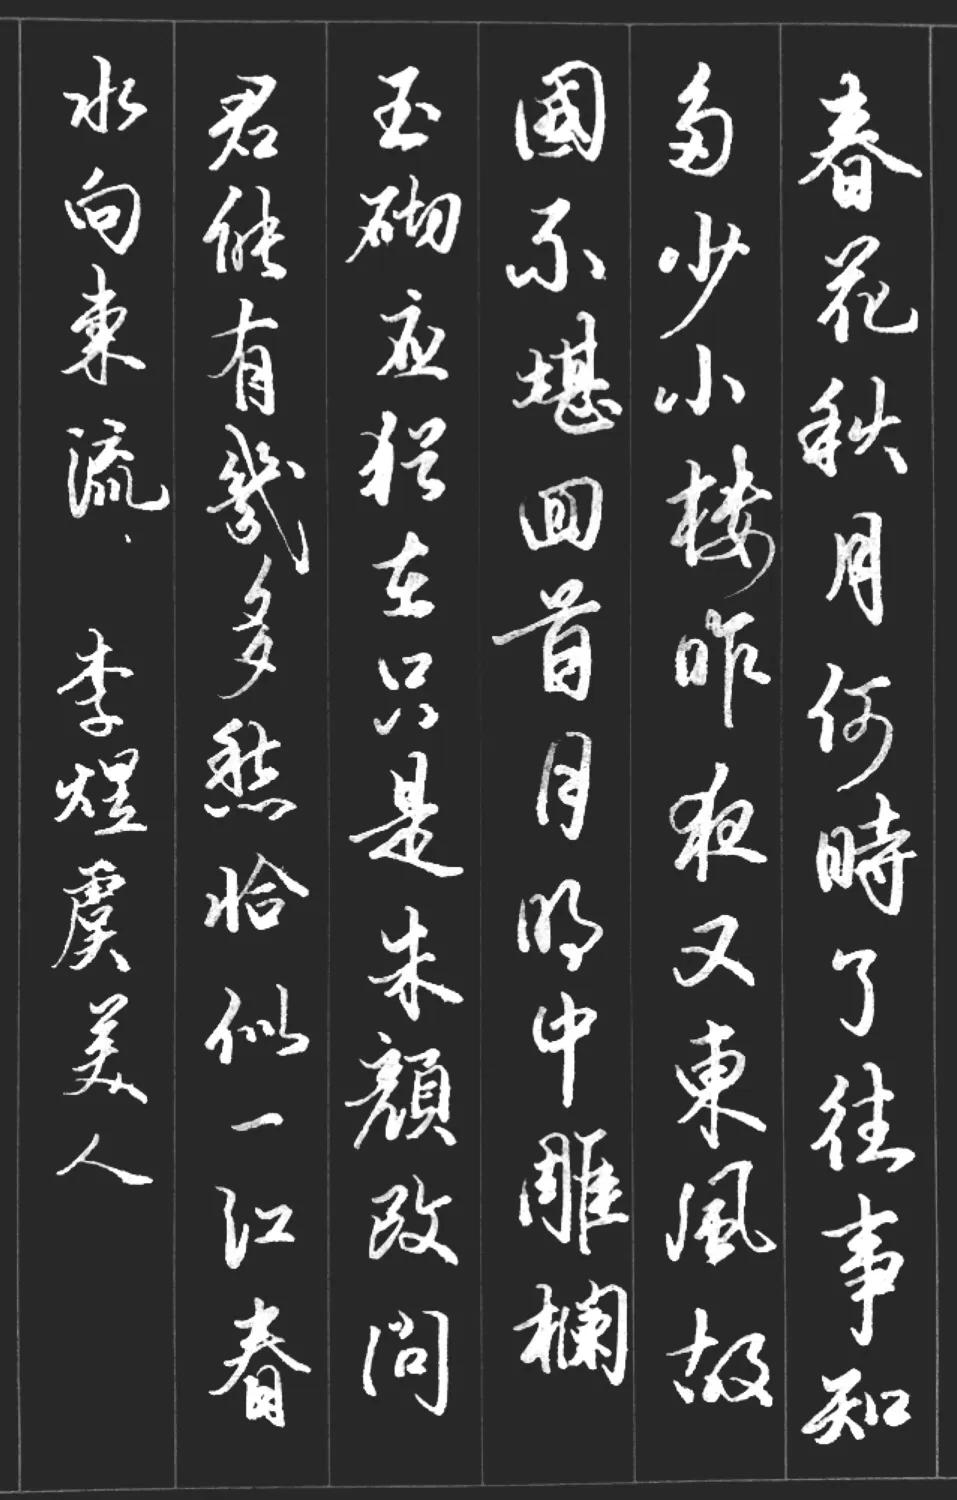 春花秋月何時了往事知
多少小楼昨夜又東風故
國不堪回首月明中雕欄
玉砌应猶在只是朱顏改問
君能有幾多愁恰似一江春
水向東流、 李煜虞美人